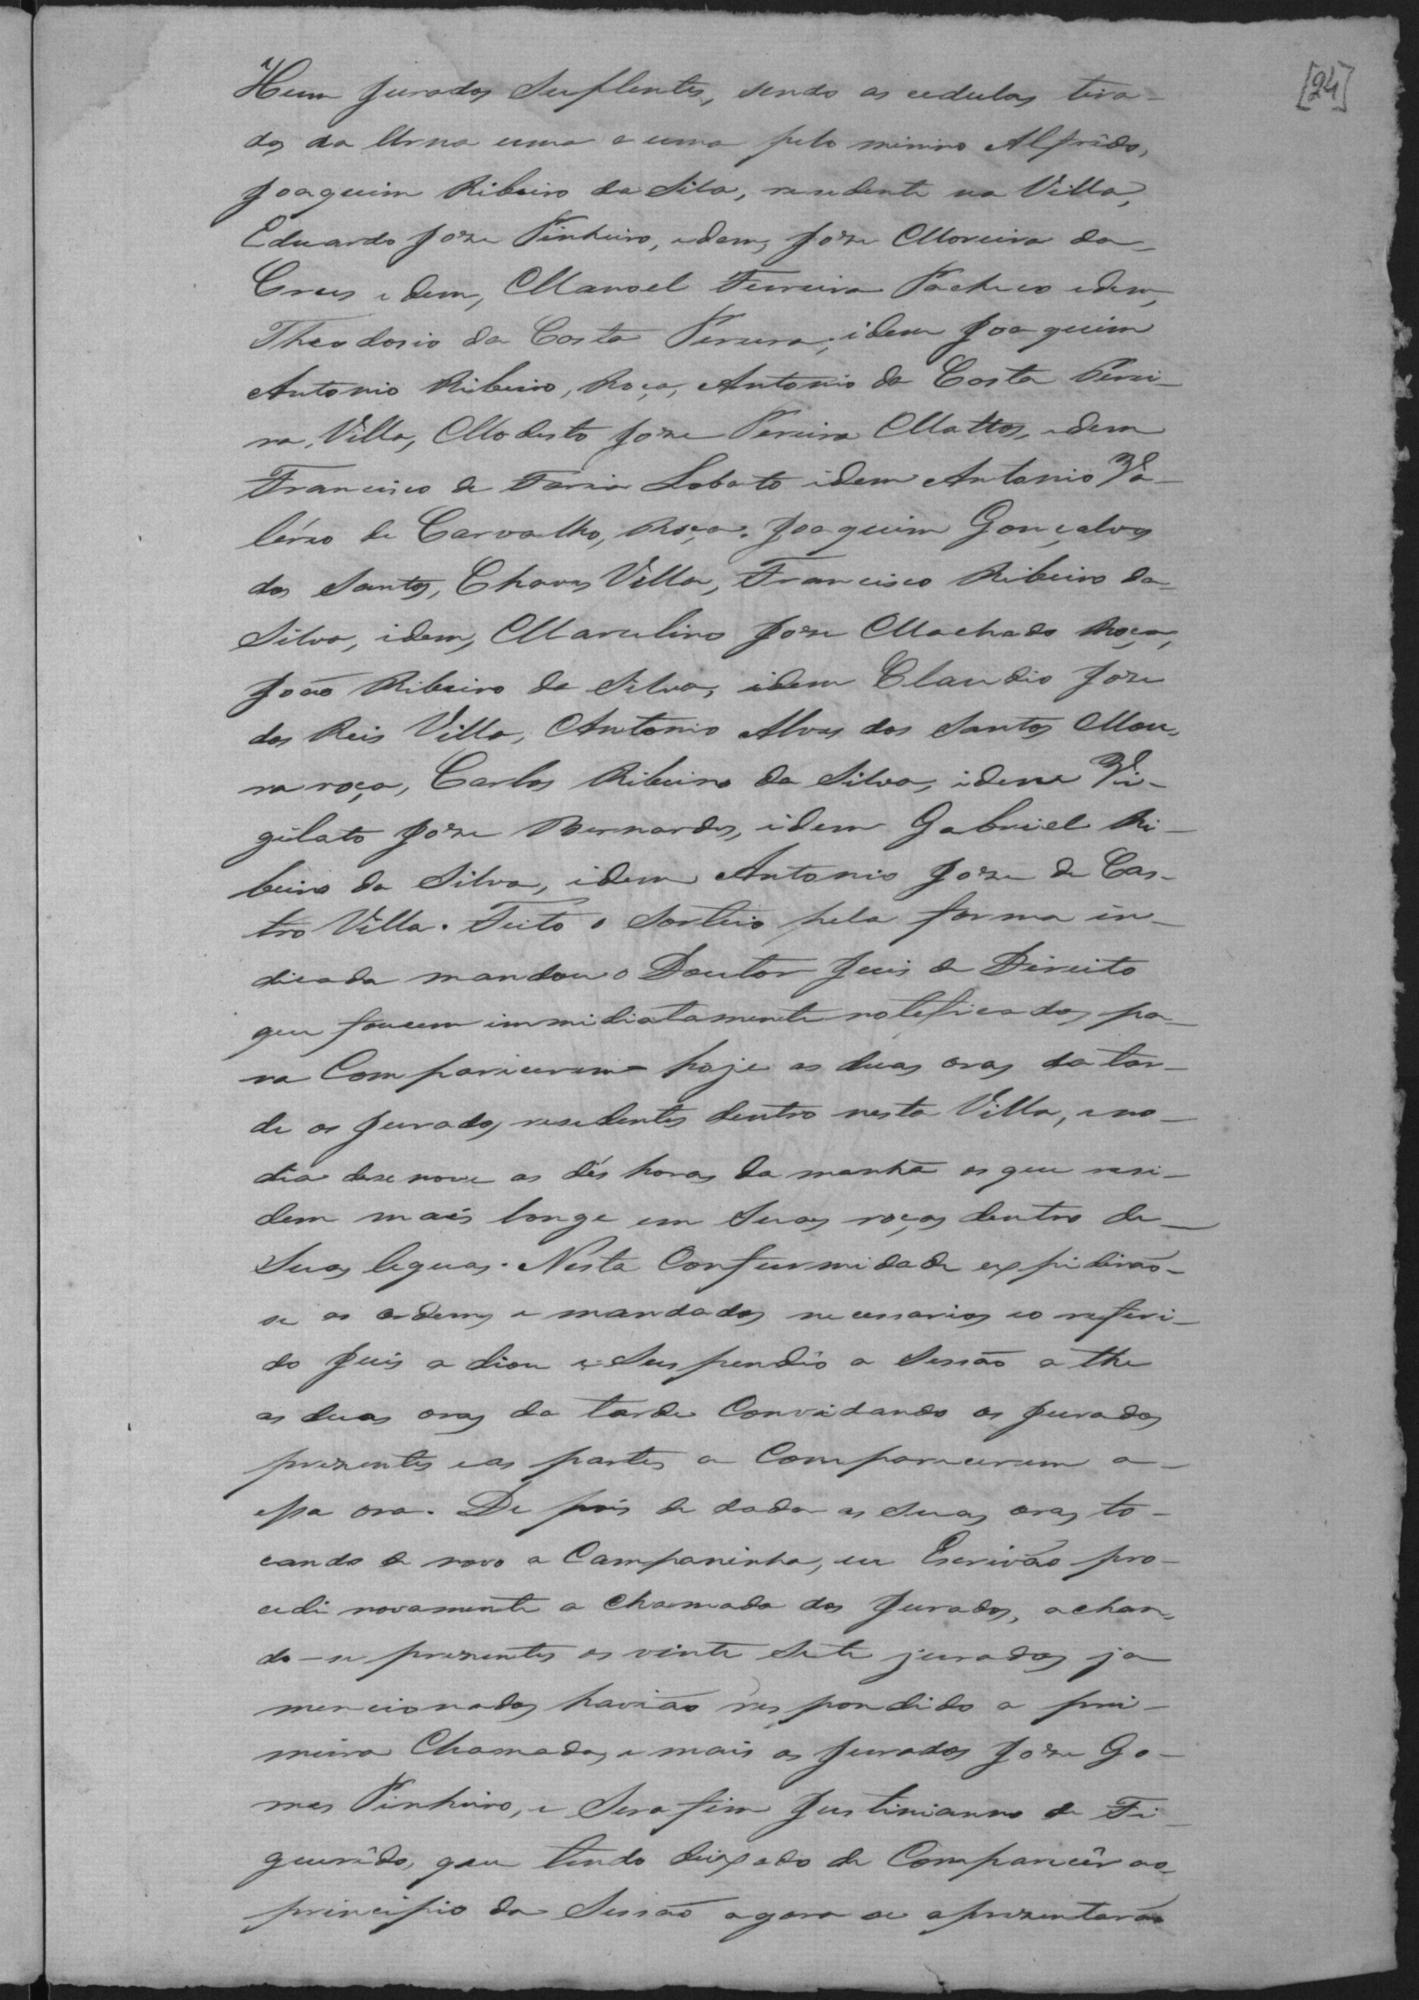 [24]
Hum Jurados Suplentes, sendo as cedulas tira-
das da Urna uma a uma pelo minino Alfrêdo,
Joaquim Ribeiro da Silva, residente na Villa,
Eduardo Joze Pinheiro, idem, Joze Moreira da
Crus idem, Manoel Ferreira Pacheco idem,
Theodosio da Costa Pereira, idem Joaquim
Antonio Ribeiro, Roça, Antonio da Costa Perei-
ra, Villa, Modesto Joze Pereira Mattos, idem
Francisco de Faria Lobato idem Antonio Va-
lério de Carvalho, Roça. Joaquim Gonçalves
dos Santos, Chaves Villa, Francisco Ribeiro da
Silva, idem, Marcelino Joze Machado Roça,
João Ribeiro da Silva, idem Claudio Joze
dos Reis Villa, Antonio Alves dos Santos Mou-
ra roça, Carlos Ribeiro da Silva, idem Vi-
gilato Joze Bernardes, idem Gabriel Ri-
beiro da Silva, idem Antonio Joze de Cas-
tro Villa. Feito o Sorteio pela forma in-
dicada mandou o Doutor Juis de Direito
que foucem immidiatamente noteficados pa-
ra Compariceremhoje as duas oras da tar-
de os Jurados residentes dentro nesta Villa, e no
dia desenove as dés horas da manhã os que resi-
dem mais longe em Suas roças dentro de
Suas leguas. Nesta Confurmidade expidirão-
se as ordens e mandados necessarios eo referi-
do Juis a diou e Suspendio a Sessão a the
as duas oras da tarde Convidando os Jurados
prezentes eas partes a Comparecerem a
essa ora. De pois de dada as duas oras to-
cando de novo a Campaninha, eu Escrivão pro-
cedi novamente a Chamada dos Jurados, achan-
do-se prezentes os vinte Sete jurados ja
mencionados havião respondido a pri-
meira Chamada, e mais os Jurados Joze Go-
mes Pinheiro, e Serafim Justinianno de Fi-
gueirêdo, que tendo deixado de Comparecêr ao
principio da Sessão agora se aprezentarão